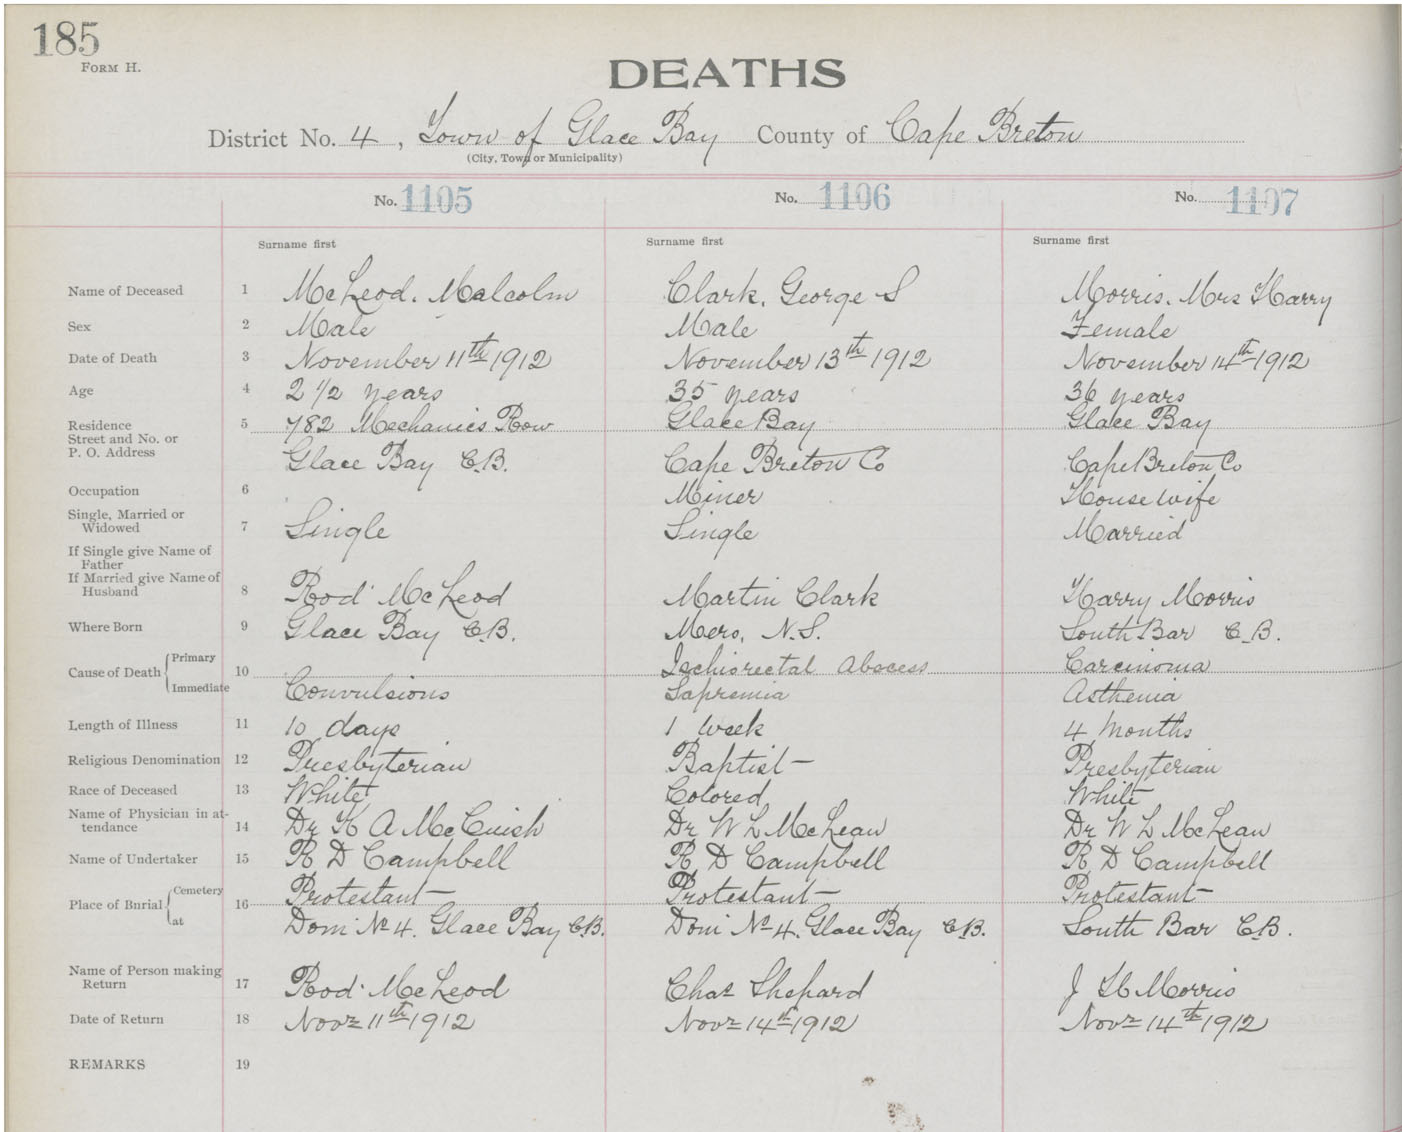 185
FORM H.
DEATHS
District No. 4, Town of Glace Bay County of Cape Breton
(City, Town or Municipality)
No. 1105 No. 1106 No. 1107
Surname first Surname first Surname first
Name of Deceased 1 McLeod. Malcolm Clark, George S Morris. Mrs Harry
Sex 2 Male Male Female
Date of Death 3 November 11th 1912 November 13th 1912 November 14th 1912
Age 4 2 1/2 years 35 years 36 years
Residence 5 782 Mechanics Row Glace Bay Glace Bay
Street and No. or
P. O. Address Glace Bay C.B. Cape Breton Co Cape Breton Co
Occupation 6 Miner House wife
Single, Married or
Widowed 7 Single Single Married
If Single give Name of
Father
If Married give Name of
Husband 8 Rod McLeod Martin Clark Harry Morris
Where Born 9 Glace Bay C.B. N.S. South Bar C.B.
Cause of Death Primary 10 Ischiorectal Abscess Carcinoma
Immediate Convulsions Sapremia Asthenia
Length of Illness 11 10 days 1 week 4 months
Religious Denomination 12 Presbyterian Baptist Presbyterian
Race of Deceased 13 White Colored White
Name of Physician in at-
tendance 14 Dr K A McCuish Dr W L McLean Dr W L McLean
Name of Undertaker 15 R D Campbell R D Campbell R D Campbell
Place of Burial Cemetery 16 Protestant Protestant Protestant
at Dom No 4. Glace Bay C.B. Dom No 4. Glace Bay C.B. South Bar C.B.
Name of Person making
Return 17 Rod McLeod Chas Shepard J H Morris
Date of Return 18 Novr 11th 1912 Novr 14th 1912 Novr 14th 1912
REMARKS 19